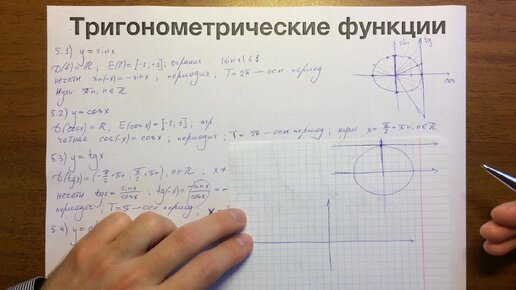 Тригонометрические функции
5.1) y = sin x
D(f) = ℝ, E(f) = [-1;1]; огранич |sin x| ≤ 1
нечетн sin(-x) = -sin x, периодич, T = 2π — осн период
Нули πn, n∈ℤ
5.2) y = cos x
D(cos x) = ℝ, E(cos x) = [-1;1]; огр
четная cos(-x) = cos x, периодич, T = 2π — осн период, нули x = π/2 + πn, n∈ℤ
5.3) y = tg x
D(tg x) = (-π/2 + πn; π/2 + πn), n∈ℤ, x ≠
нечетн tg x = sin x/cos x; tg(-x) = -sin x/cos x =
периодич, T = π — осн период,
5.4) y = c
sin
tg
cos